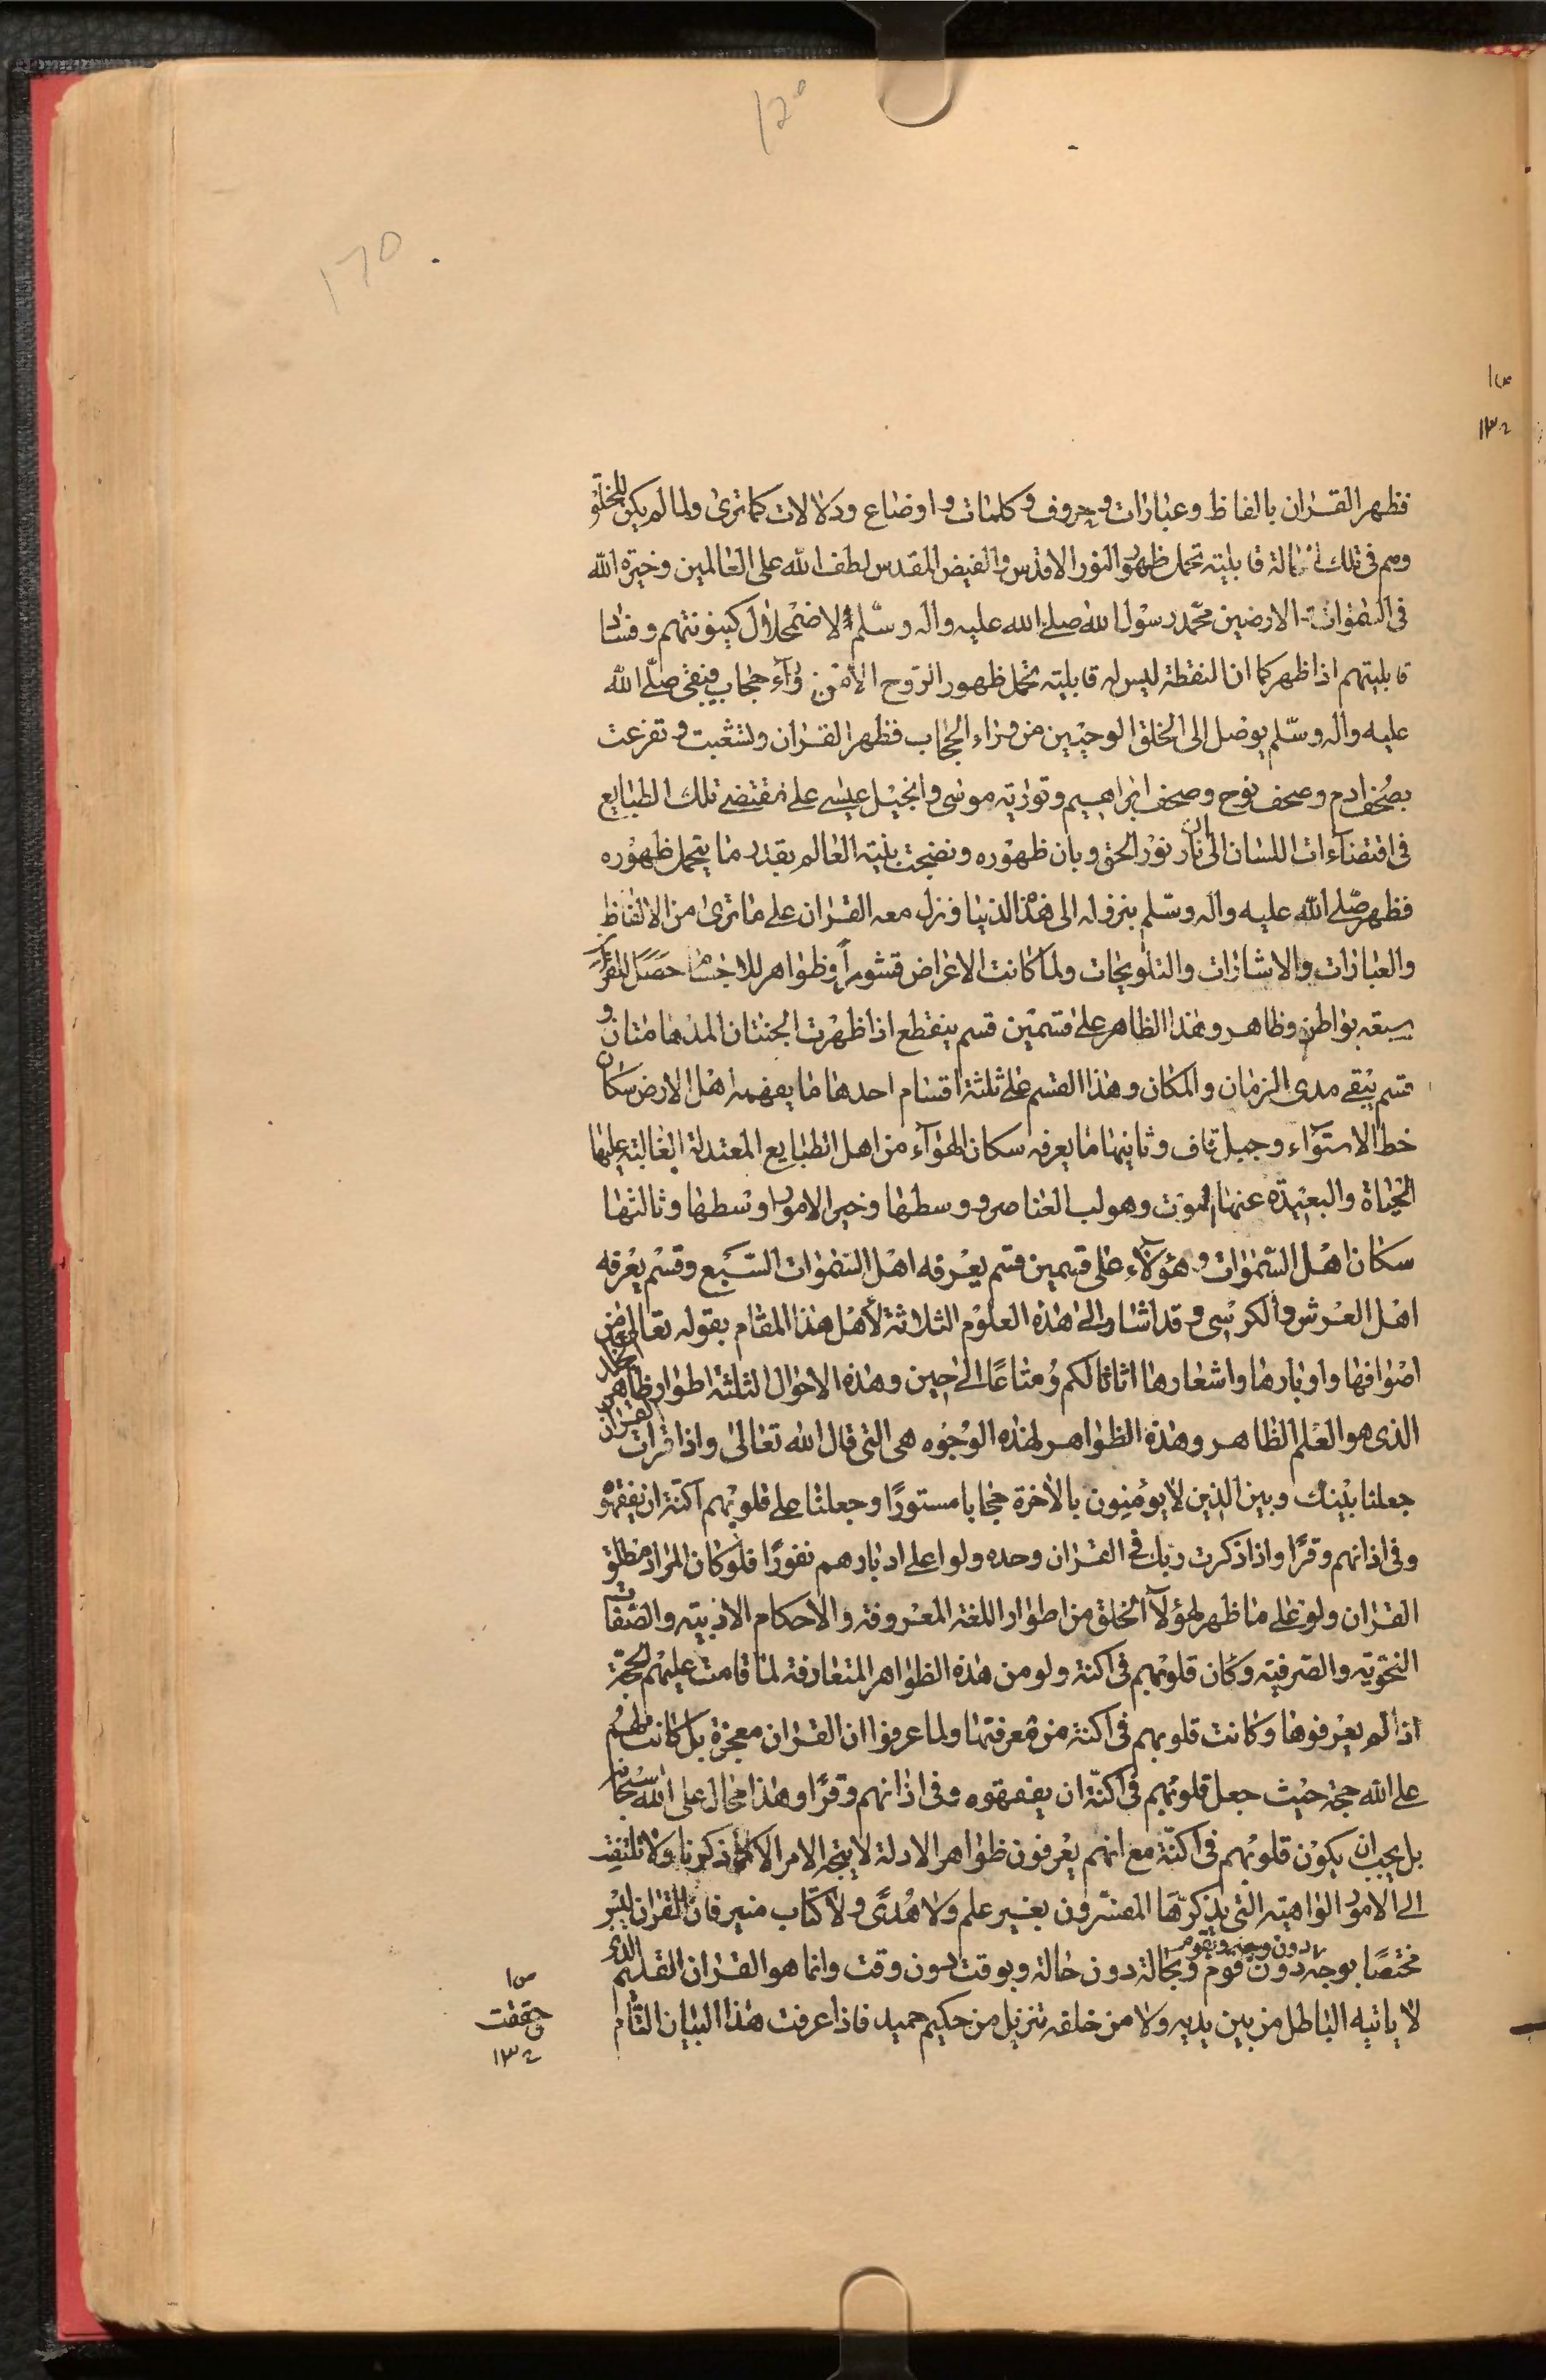 ١٢٥
١٦٥
فظهر القران بالفاظ وعبارات وحروف وكلمات واوضاع ودلالات كما ترى ولما لم يكن للخلق
وهم فى تلك الحالة قابلية تحمل ظهور النور الاقدس والفيض المقدس لطف الله على العالمين وخيرة الله
فى السموات الارضين محمد رسول الله صلى الله عليه واله وسلم لاضمحلال كينونتهم وفساد
قابليتهم اذا ظهر كما ان النقطة ليس له قابلية تحمل ظهور الروح الا من وراء حجاب فبقى صلى الله
عليه واله وسلم يوصل الى الخلق الوحيين من وراء الحجاب فظهر القران وتشعبت وتفرعت
بصحف ادم وصحف نوح وصحف ابراهيم وتورية موسى وانجيل عيسى على مقتضى تلك الطبايع
فى اقتضاءات اللسان الى ان نار نور الحق وبان ظهوره ونضجت بنية العالم بقدر ما يتحمل ظهوره
فظهر صلى الله عليه واله وسلم بنزوله الى هذا الدنيا ونزل معه القران على ما ترى من الالفاظ
والعبارات والاشارات والتلويحات ولما كانت الاعراض قشوراً وظواهر للاجسام حصل للقران
سبعة بواطن وظاهر وهذا الظاهر على قسمين قسم ينقطع اذا ظهرت الجنتان المدهامتان و
قسم يبقى مدى الزمان والمكان وهذا القسم على ثلثة اقسام احدها ما يفهمه اهل الارض سكان
خط الاستواء وجبل قاف وثانيها ما يعرفه سكان الهواء من اهل الطبايع المعتدلة الغالبة عليها
الحياة والبعيدة عنها الموت وهو لب العناصر ووسطها وخير الامور اوسطها وثالثها
سكان اهل السموات وهؤلاء على قسمين قسم يعرفه اهل السموات السبع وقسم يعرفه
اهل العرش والكرسى وقد اشار الى هذه العلوم الثلاثة لأهل هذا المقام بقوله تعالى ومن
اصوافها واوبارها واشعارها اثاثا لكم ومتاعاً الى حين وهذه الاحوال الثلثة اطوار ظاهر الجلد
الذى هو العلم الظاهر وهذه الظواهر لهذه الوجوه هى التى قال الله تعالى واذا قرات القران
جعلنا بينك وبين الذين لا يؤمنون بالاخرة حجابا مستورًا وجعلنا على قلوبهم اكنة ان يفقهوه
وفى اذانهم وقرًا واذا ذكرت ربك فى القران وحده ولوا على ادبارهم نفورًا فلو كان المراد مطلق
القران ولو على ما ظهر لهؤلاء الخلق من اطوار اللغة المعروفة والاحكام الادبية والصفات
النحوية والصرفية وكان قلوبهم فى اكنة ولو من هذه الظواهر المتعارفة لما قامت عليهم الحجة
اذا لم يعرفوها وكانت قلوبهم فى اكنة من معرفتها ولما عرفوا ان القران معجزة بل كانت لهم
على الله حجة حيث جعل قلوبهم فى اكنة ان يفقهوه وفى اذانهم وقرًا وهذا محال على الله سبحانه
بل يجب ان يكون قلوبهم فى اكنة مع انهم يعرفون ظواهر الادلة لا يتجه الامر الا كما ذكرنا ولا تلتفت
الى الامور الواهية التى يذكرها المفسرون بغير علم ولا هدًى ولا كتاب منير فان القران ليس
مختصًا بوجه دون وجه وبقوم دون قوم وبحالة دون حالة وبوقت دون وقت وانما هو القران القديم الذى
لا ياتيه الباطل من بين يديه ولا من خلفه تنزيل من حكيم حميد فاذا عرفت هذا البيان التام
حققت